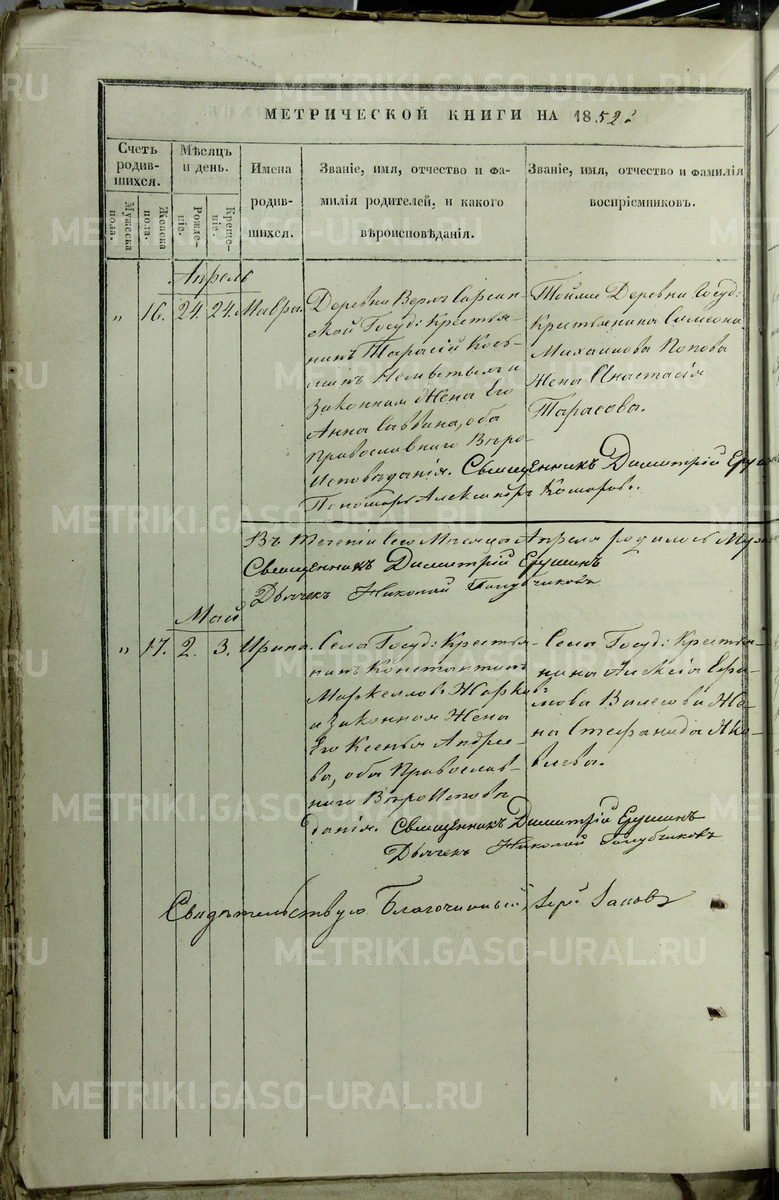 МЕТРИЧЕСКОЙ КНИГИ НА 1852
Счетъ родив-шихся.
Мѣсяцъ и день.
Мужеска пола.
Женска пола.
Рожде-ніе.
Креще-ніе.
Имена
родив-
шихся.
Званіе, имя, отчество и фа-
милія родителей, и какого
вѣроисповѣданія.
Званіе, имя, отчество и фамилія
воспріемниковъ.
Апрель
„ 16. 24. 24. Мавра.
Деревни Верхъ
ской Госуд: Крестья-
нинъ Тарасій
и
законная Жена Его
Анна Саввина, оба
Православнаго Вѣро-
Исповѣданія. Священникъ Димитрій
Пономарь Александръ Комаровъ.
Той же Деревни Госуд:
Крестьянина Симеона
Михаилова Попова
Жена Анастасія
Тарасова.
Въ теченіи сего Мѣсяца Апреля родилось
Священникъ Димитрій Ерушинъ
Дьячекъ Николай Голубчиковъ
Май
„ 17. 2. 3. Ирина.
Села Госуд: Крестья-
нинъ Константинъ
Маркелловъ
и законная Жена
Его Ксенья Андрее-
ва, оба Православ-
наго Вѣроисповѣ
данія. Священникъ Димитрій Ерушинъ
Дьячекъ Николай Голубчиковъ
Села Госуд: Крестья-
нина Алексія Ефи-
мова Же-
на Стефанида Яко-
влева.
Свидѣтельствую Благочинный,
METRIKI.GASO-URAL.RU